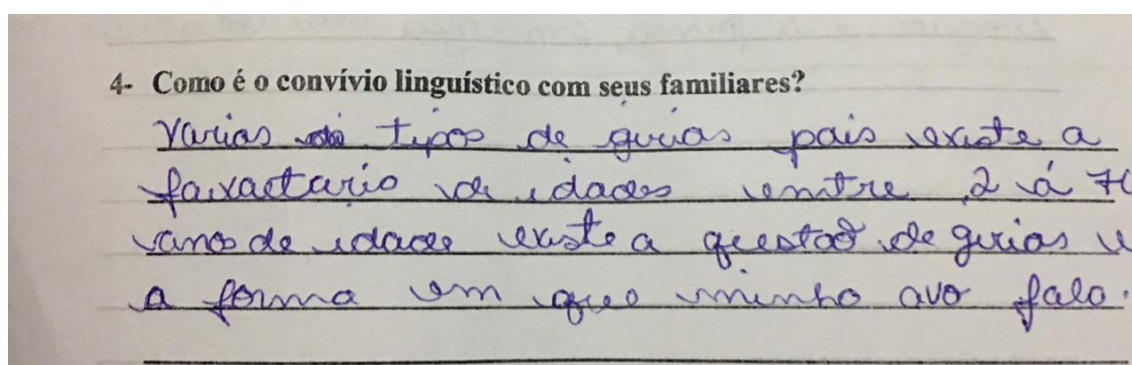 4- Como é o convívio linguístico com seus familiares?
Varias tipos de girias pais existe a
faixaetario de idades entre 2 á 70
anos de idades existe a questaõ de girias e
a forma em que minha avo fala.